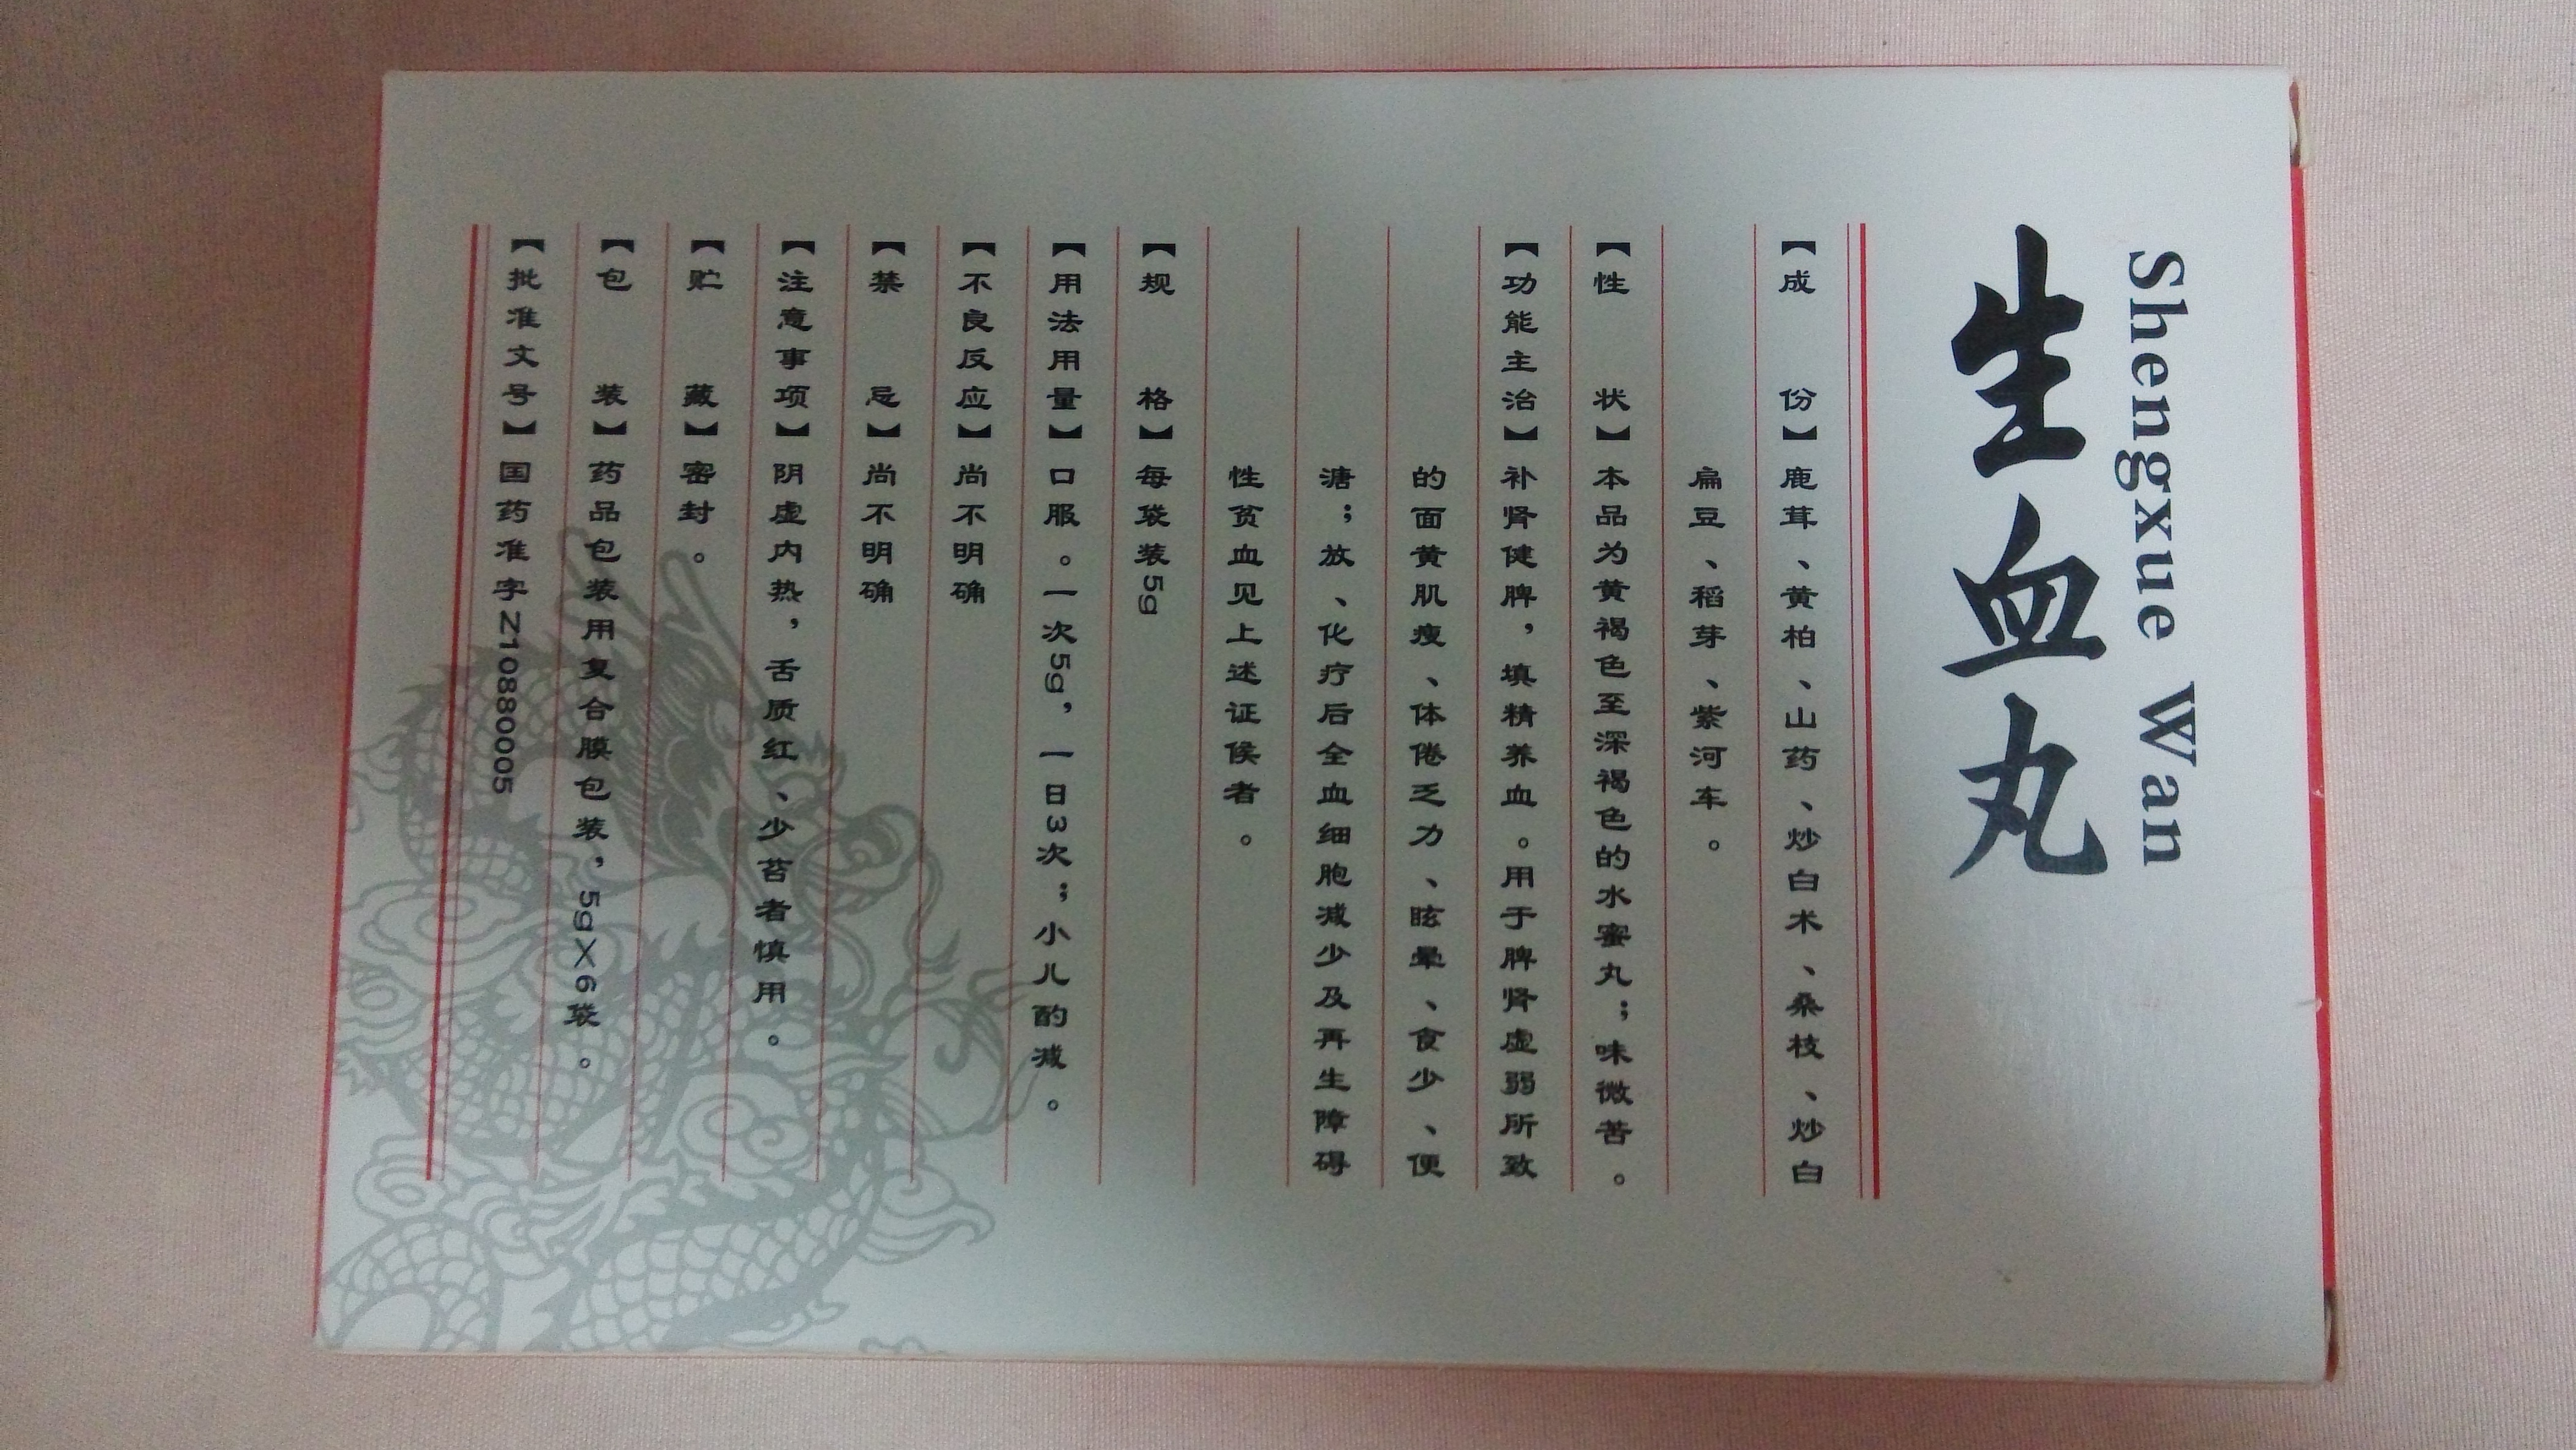 生血丸
Shengxue Wan
【成份】鹿茸、黄柏、山药、炒白术、桑枝、炒白
扁豆、稻芽、紫河车。
【性状】本品为黄褐色至深褐色的水蜜丸；味微苦。
【功能主治】补肾健脾，填精养血。用于脾肾虚弱所致
的面黄肌瘦、体倦乏力、眩晕、食少、便
溏；放、化疗后全血细胞减少及再生障碍
性贫血见上述证候者。
【规格】每袋装5g
【用法用量】口服。一次5g，一日3次；小儿酌减。
【不良反应】尚不明确
【禁忌】尚不明确
【注意事项】阴虚内热，舌质红、少苔者慎用。
【贮藏】密封。
【包装】药品包装用复合膜包装，5g×6袋。
【批准文号】国药准字Z10880005